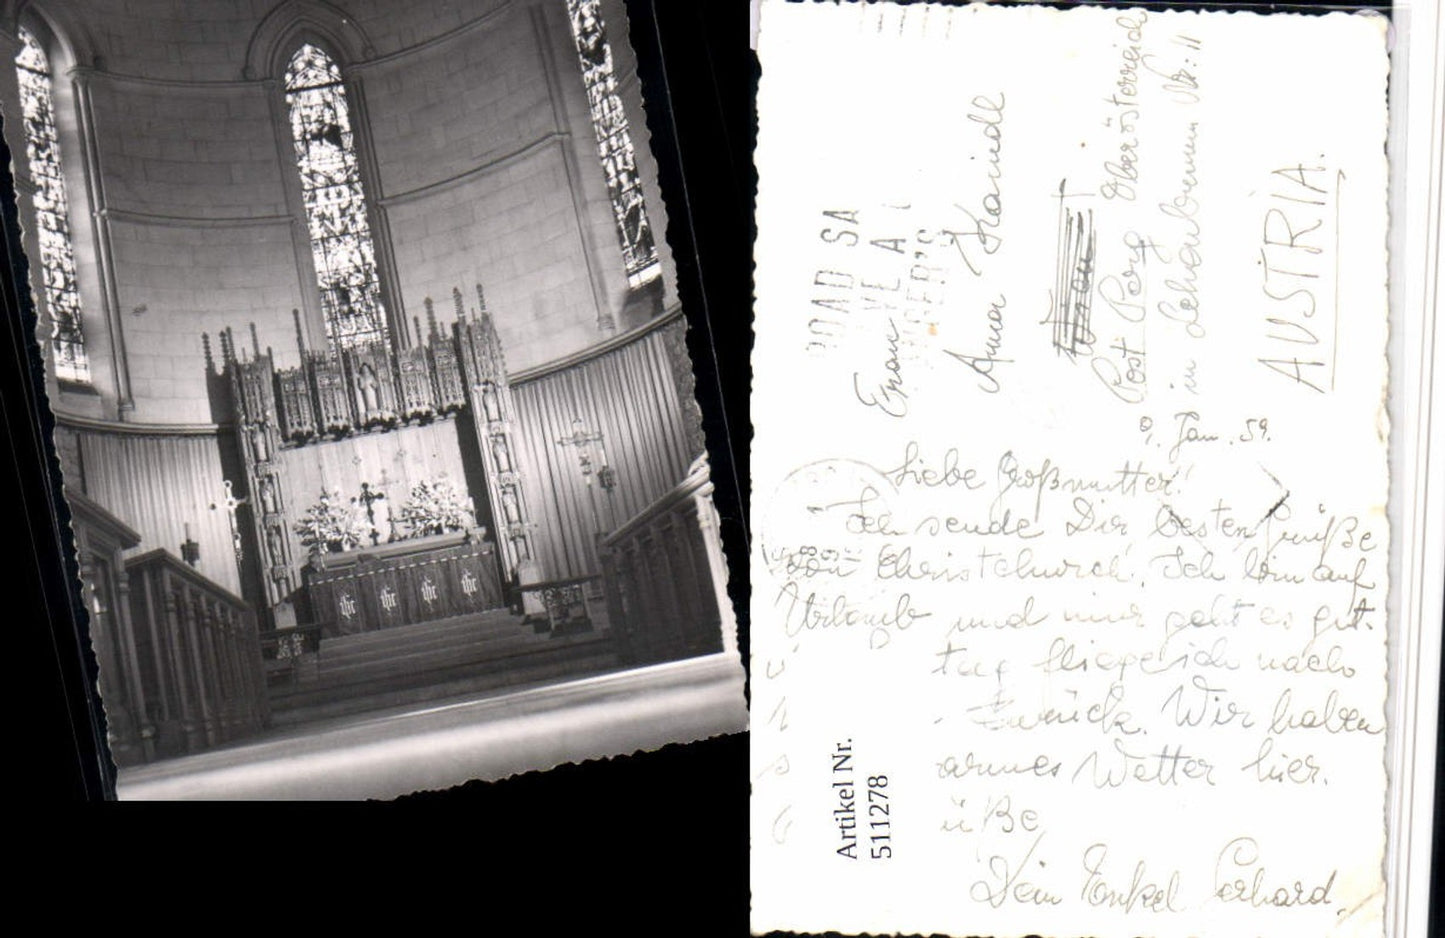 ihc ihc ihc ihc
ROAD SA
VE A
Frau
Anna Kaindl
Wien
Post Perg Oberösterreich
in Lehenbrunn Nr: 11
AUSTRIA.
9. Jan. 59.
Liebe Großmutter!
Ich sende Dir besten Grüße
von Christchurch. Ich bin auf
Urlaub und mir geht es gut.
tag fliege ich nach
zurück. Wir haben
armes Wetter hier.
üße
Dein Enkel Gerhard.
Artikel Nr.
511278